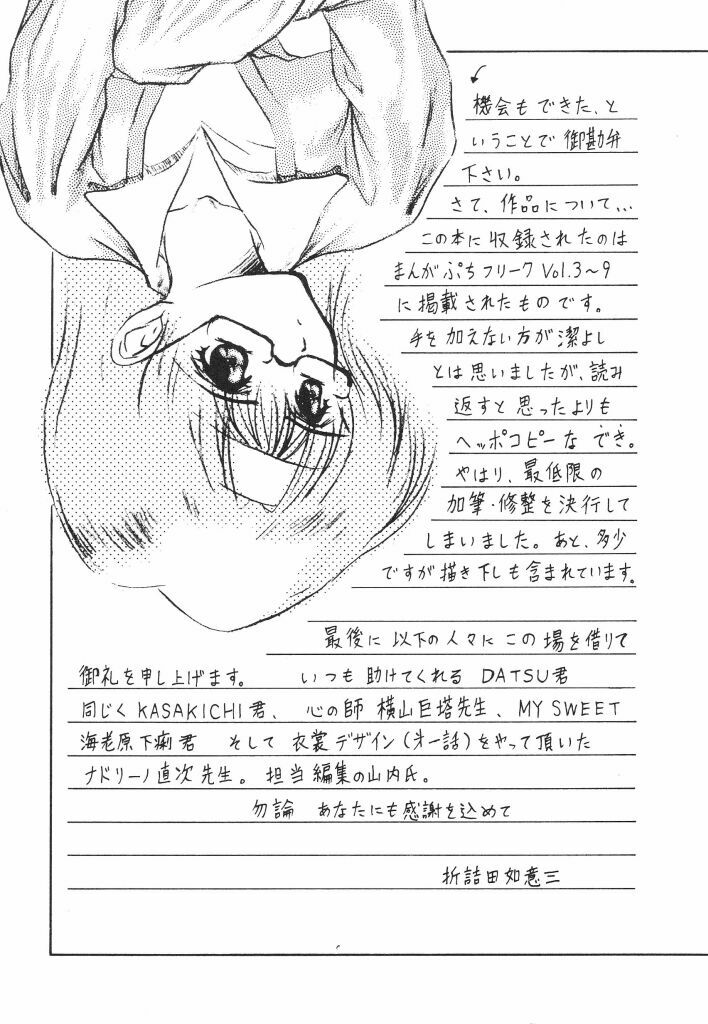 機会もできた、と
いうことで御勘弁
下さい。
さて、作品について...
この本に収録されたのは
まんがぷちフリークVol.3~9
に掲載されたものです。
手を加えない方が潔よし
とは思いましたが、読み
返すと思ったよりも
ヘッポコピーなでき。
やはり、最低限の
加筆・修整を決行して
しまいました。あと、多少
ですが描き下しも含まれています。
最後に以下の人々にこの場を借りて
御礼を申し上げます。 いつも助けてくれる DATSU君
同じくKASAKICHI君、 心の師 横山巨塔先生、MY SWEET
海老原下痢君 そして 衣裳デザイン(才一話)をやって頂いた
ナドリーノ直次先生。担当編集の山内氏。
勿論 あなたにも感謝を込めて
折詰田如意三